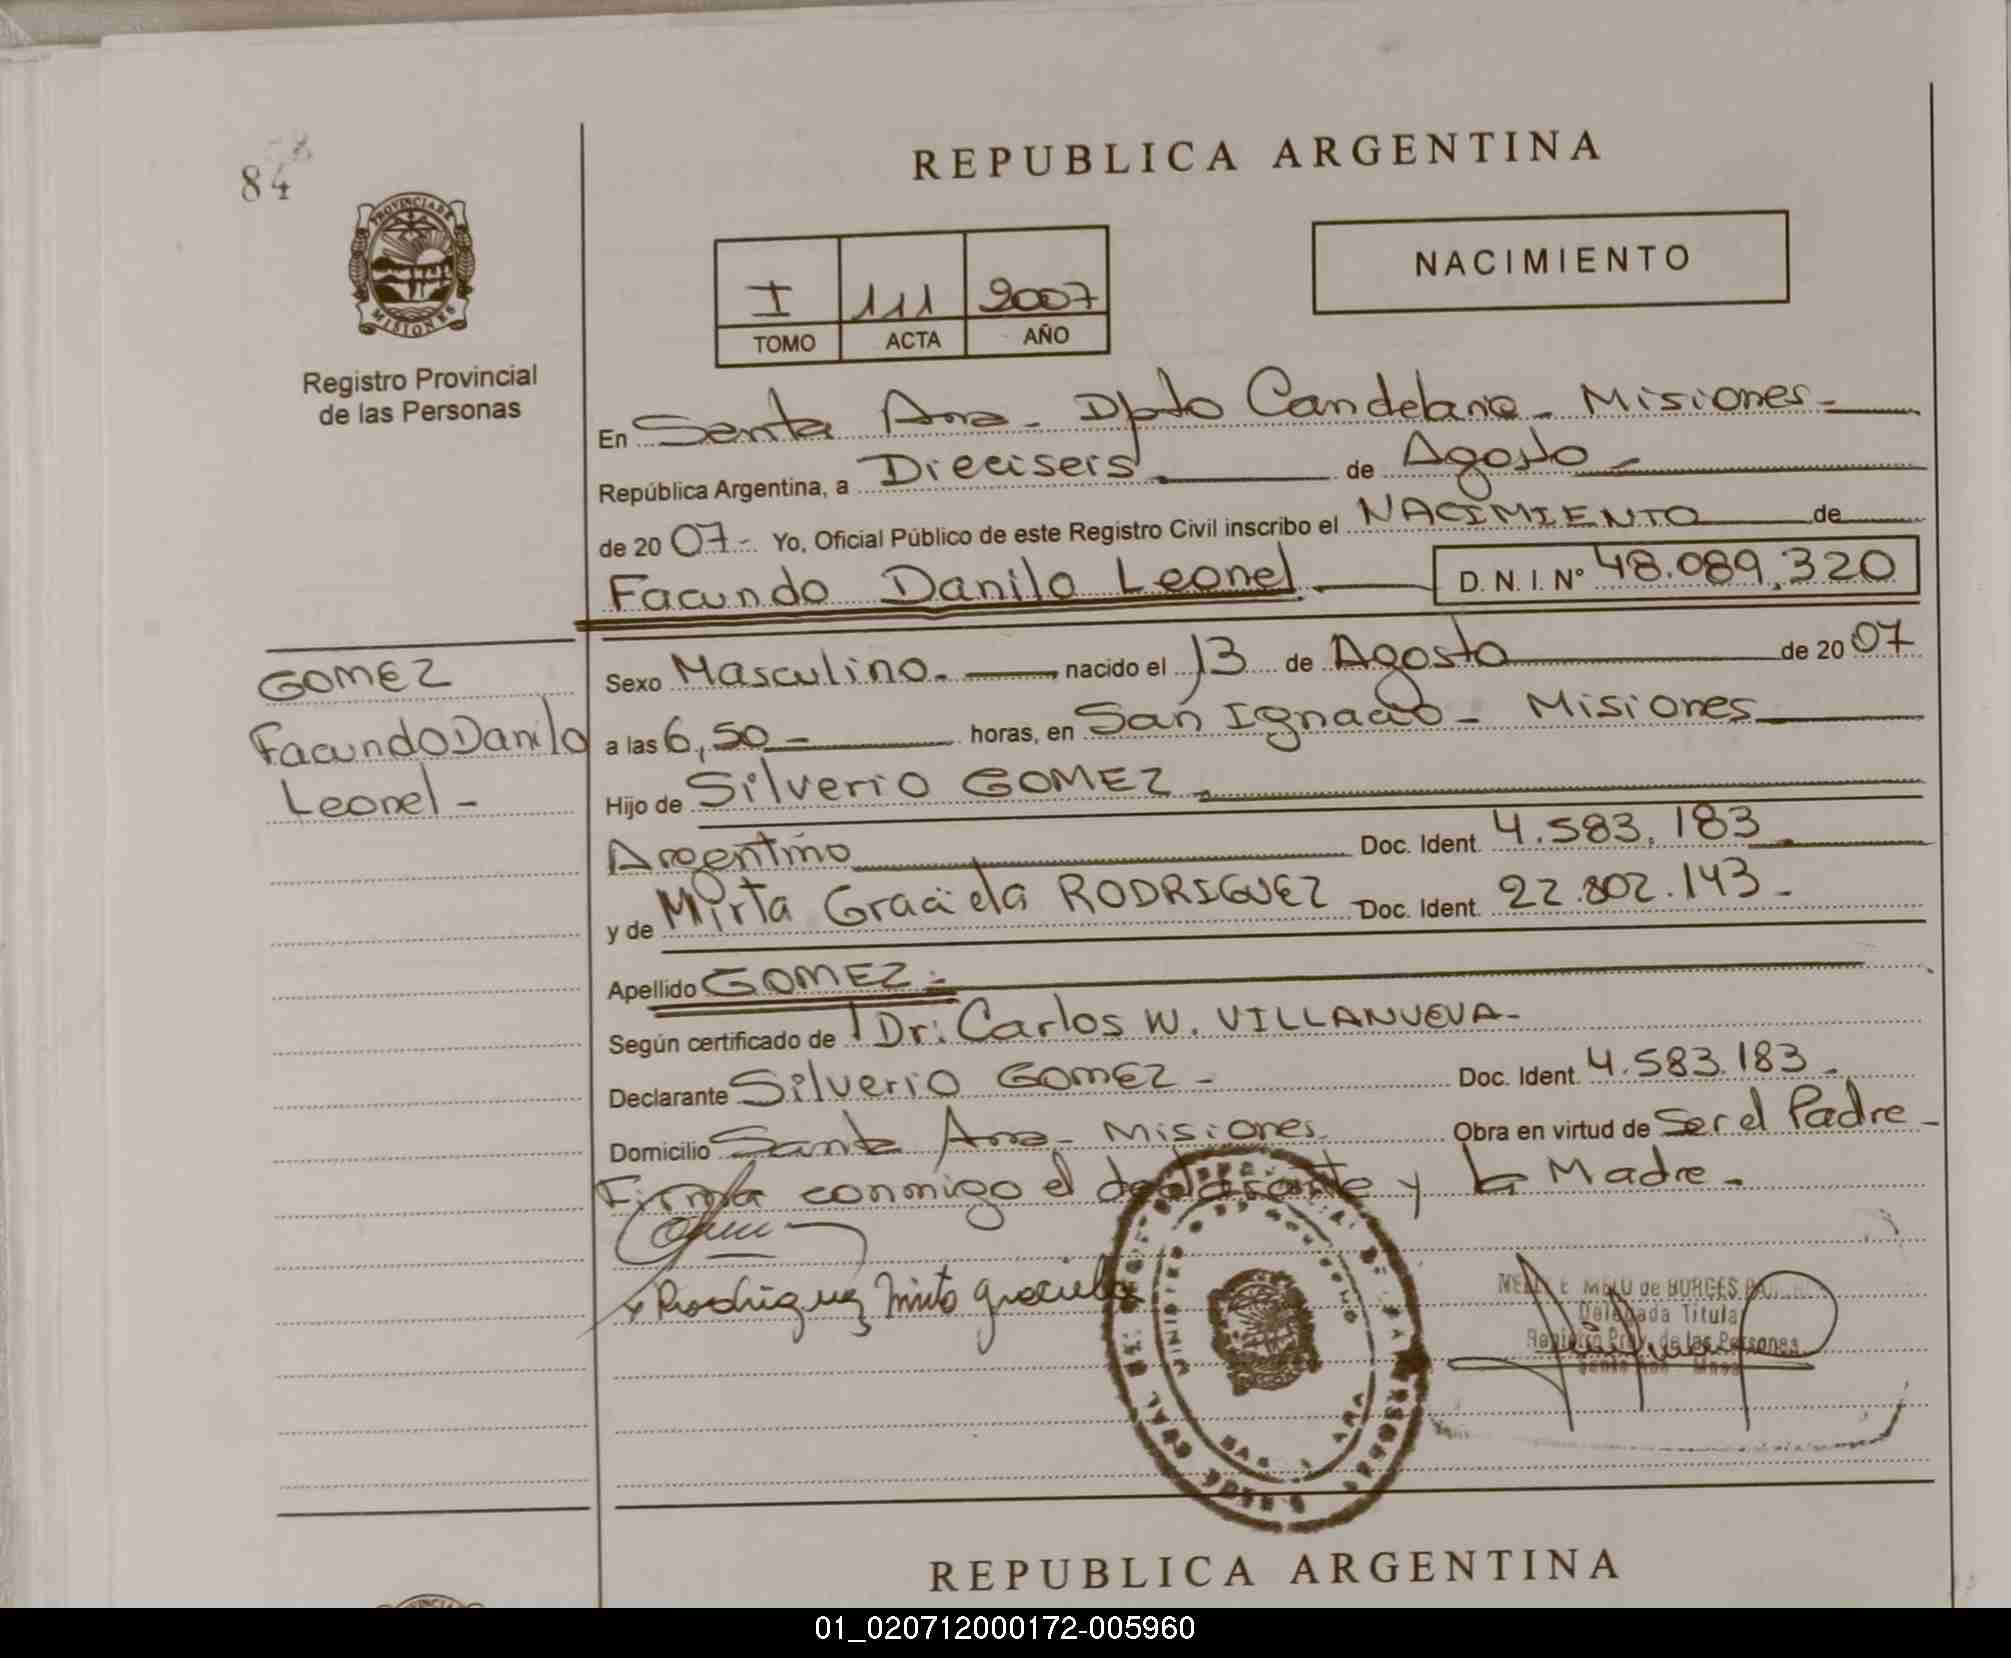 84
PROVINCIA DE
MISIONES
Registro Provincial
de las Personas
REPUBLICA ARGENTINA
I 111 2007
TOMO ACTA AÑO
NACIMIENTO
En Santa Ana - Dpto Candelaria - Misiones -
República Argentina, a Dieciseis de Agosto -
de 20 07 - Yo, Oficial Público de este Registro Civil inscribo el NACIMIENTO de
Facundo Danilo Leonel D. N. I. N° 48.089.320
GOMEZ
Facundo Danilo
Leonel -
Sexo Masculino. nacido el 13 de Agosto de 20 07
a las 6,50 - horas, en San Ignacio - Misiones
Hijo de Silverio GOMEZ
Argentino Doc. Ident. 4.583.183
y de Mirta Graciela RODRIGUEZ Doc. Ident. 22.802.143 -
Apellido GOMEZ -
Según certificado de Dr: Carlos W. VILLANUEVA -
Declarante Silverio GOMEZ - Doc. Ident. 4.583.183 -
Domicilio Santa Ana - Misiones Obra en virtud de Ser el Padre -
Firma conmigo el declarante y la Madre -
Rodriguez Mirta Graciela
MELO de BORGES
Delegada Titular
Registro Prov. de las Personas
Santa Ana Mnes
REPUBLICA ARGENTINA
01_020712000172-005960